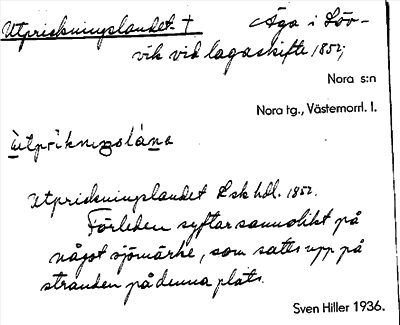 Utprickningslandet † Äga i Löv-
vik vid lagaskifte 1852;
Nora s:n
Nora tg., Västernorrl. l.
ùtprikniŋslánə
Utprickninglandet Lsk hdl. 1852.
Förleden syftar sannolikt på
något sjömärke, som satts upp på
stranden på denna plats.
Sven Hiller 1936.